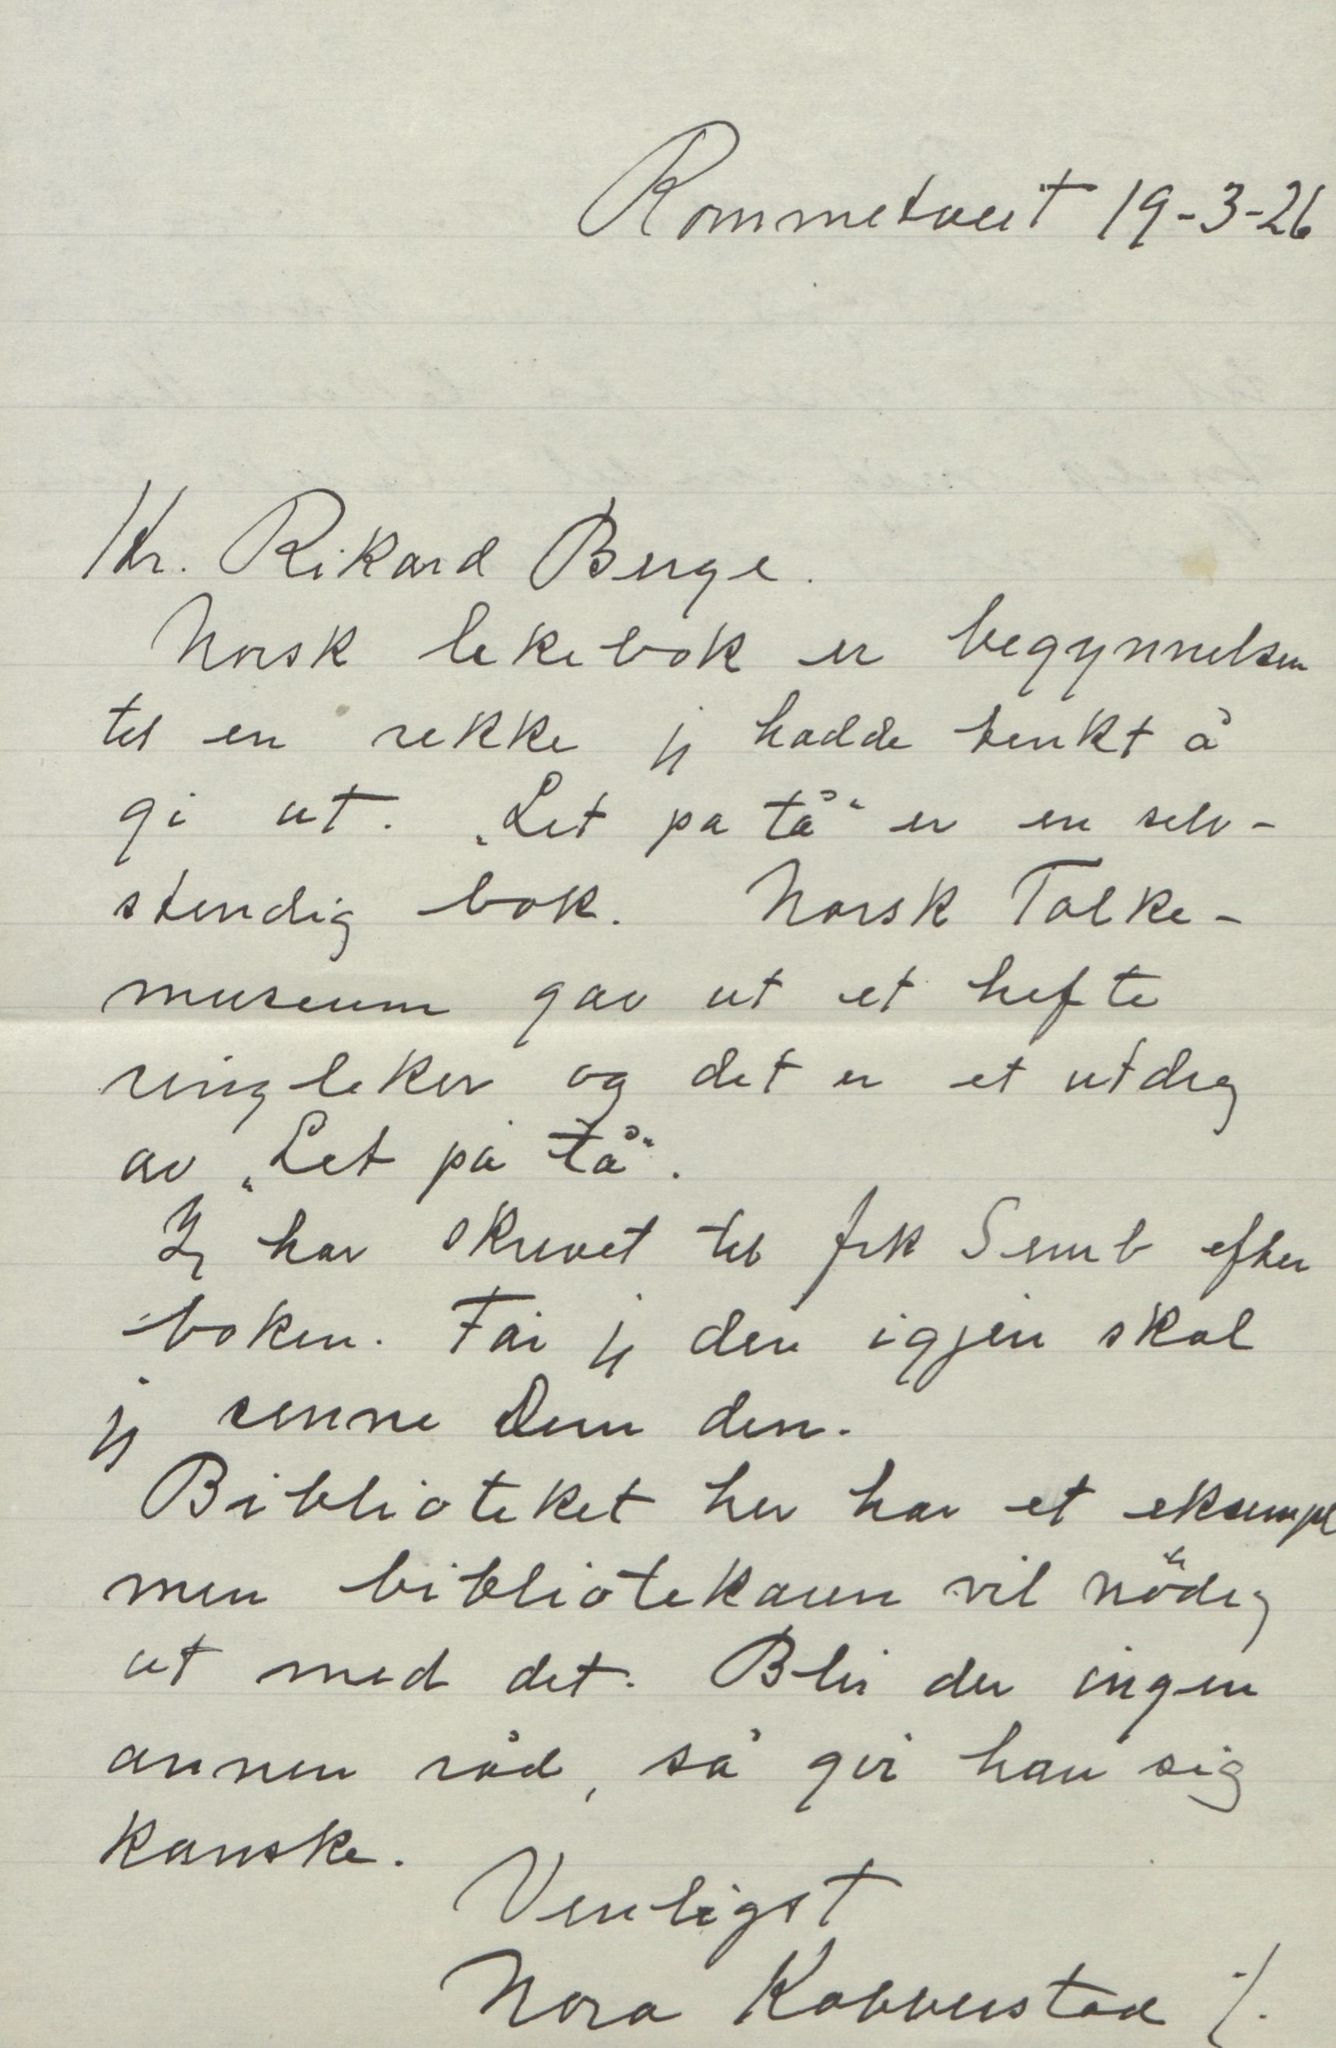 Rommetveit 19-3-26
Hr. Rikard Berge.
Norsk lekebok er begynnelsen
til en rekke jeg hadde tenkt å
gi ut. „Let pa tå“ er en selv-
stendig bok. Norsk Folke-
museum gav ut et hefte
ringleker og det er et utdrag
av „Let på tå“.
Jeg har skrevet til frk Semb efter
boken. Får jeg den igjen skal
jeg senne Dem den.
Biblioteket her har et eksempl
men bibliotekaren vil nödig
ut med det. Blir der ingen
annen råd, så gir han sig
kanske.
Venligst
Nora Kobberstad /.